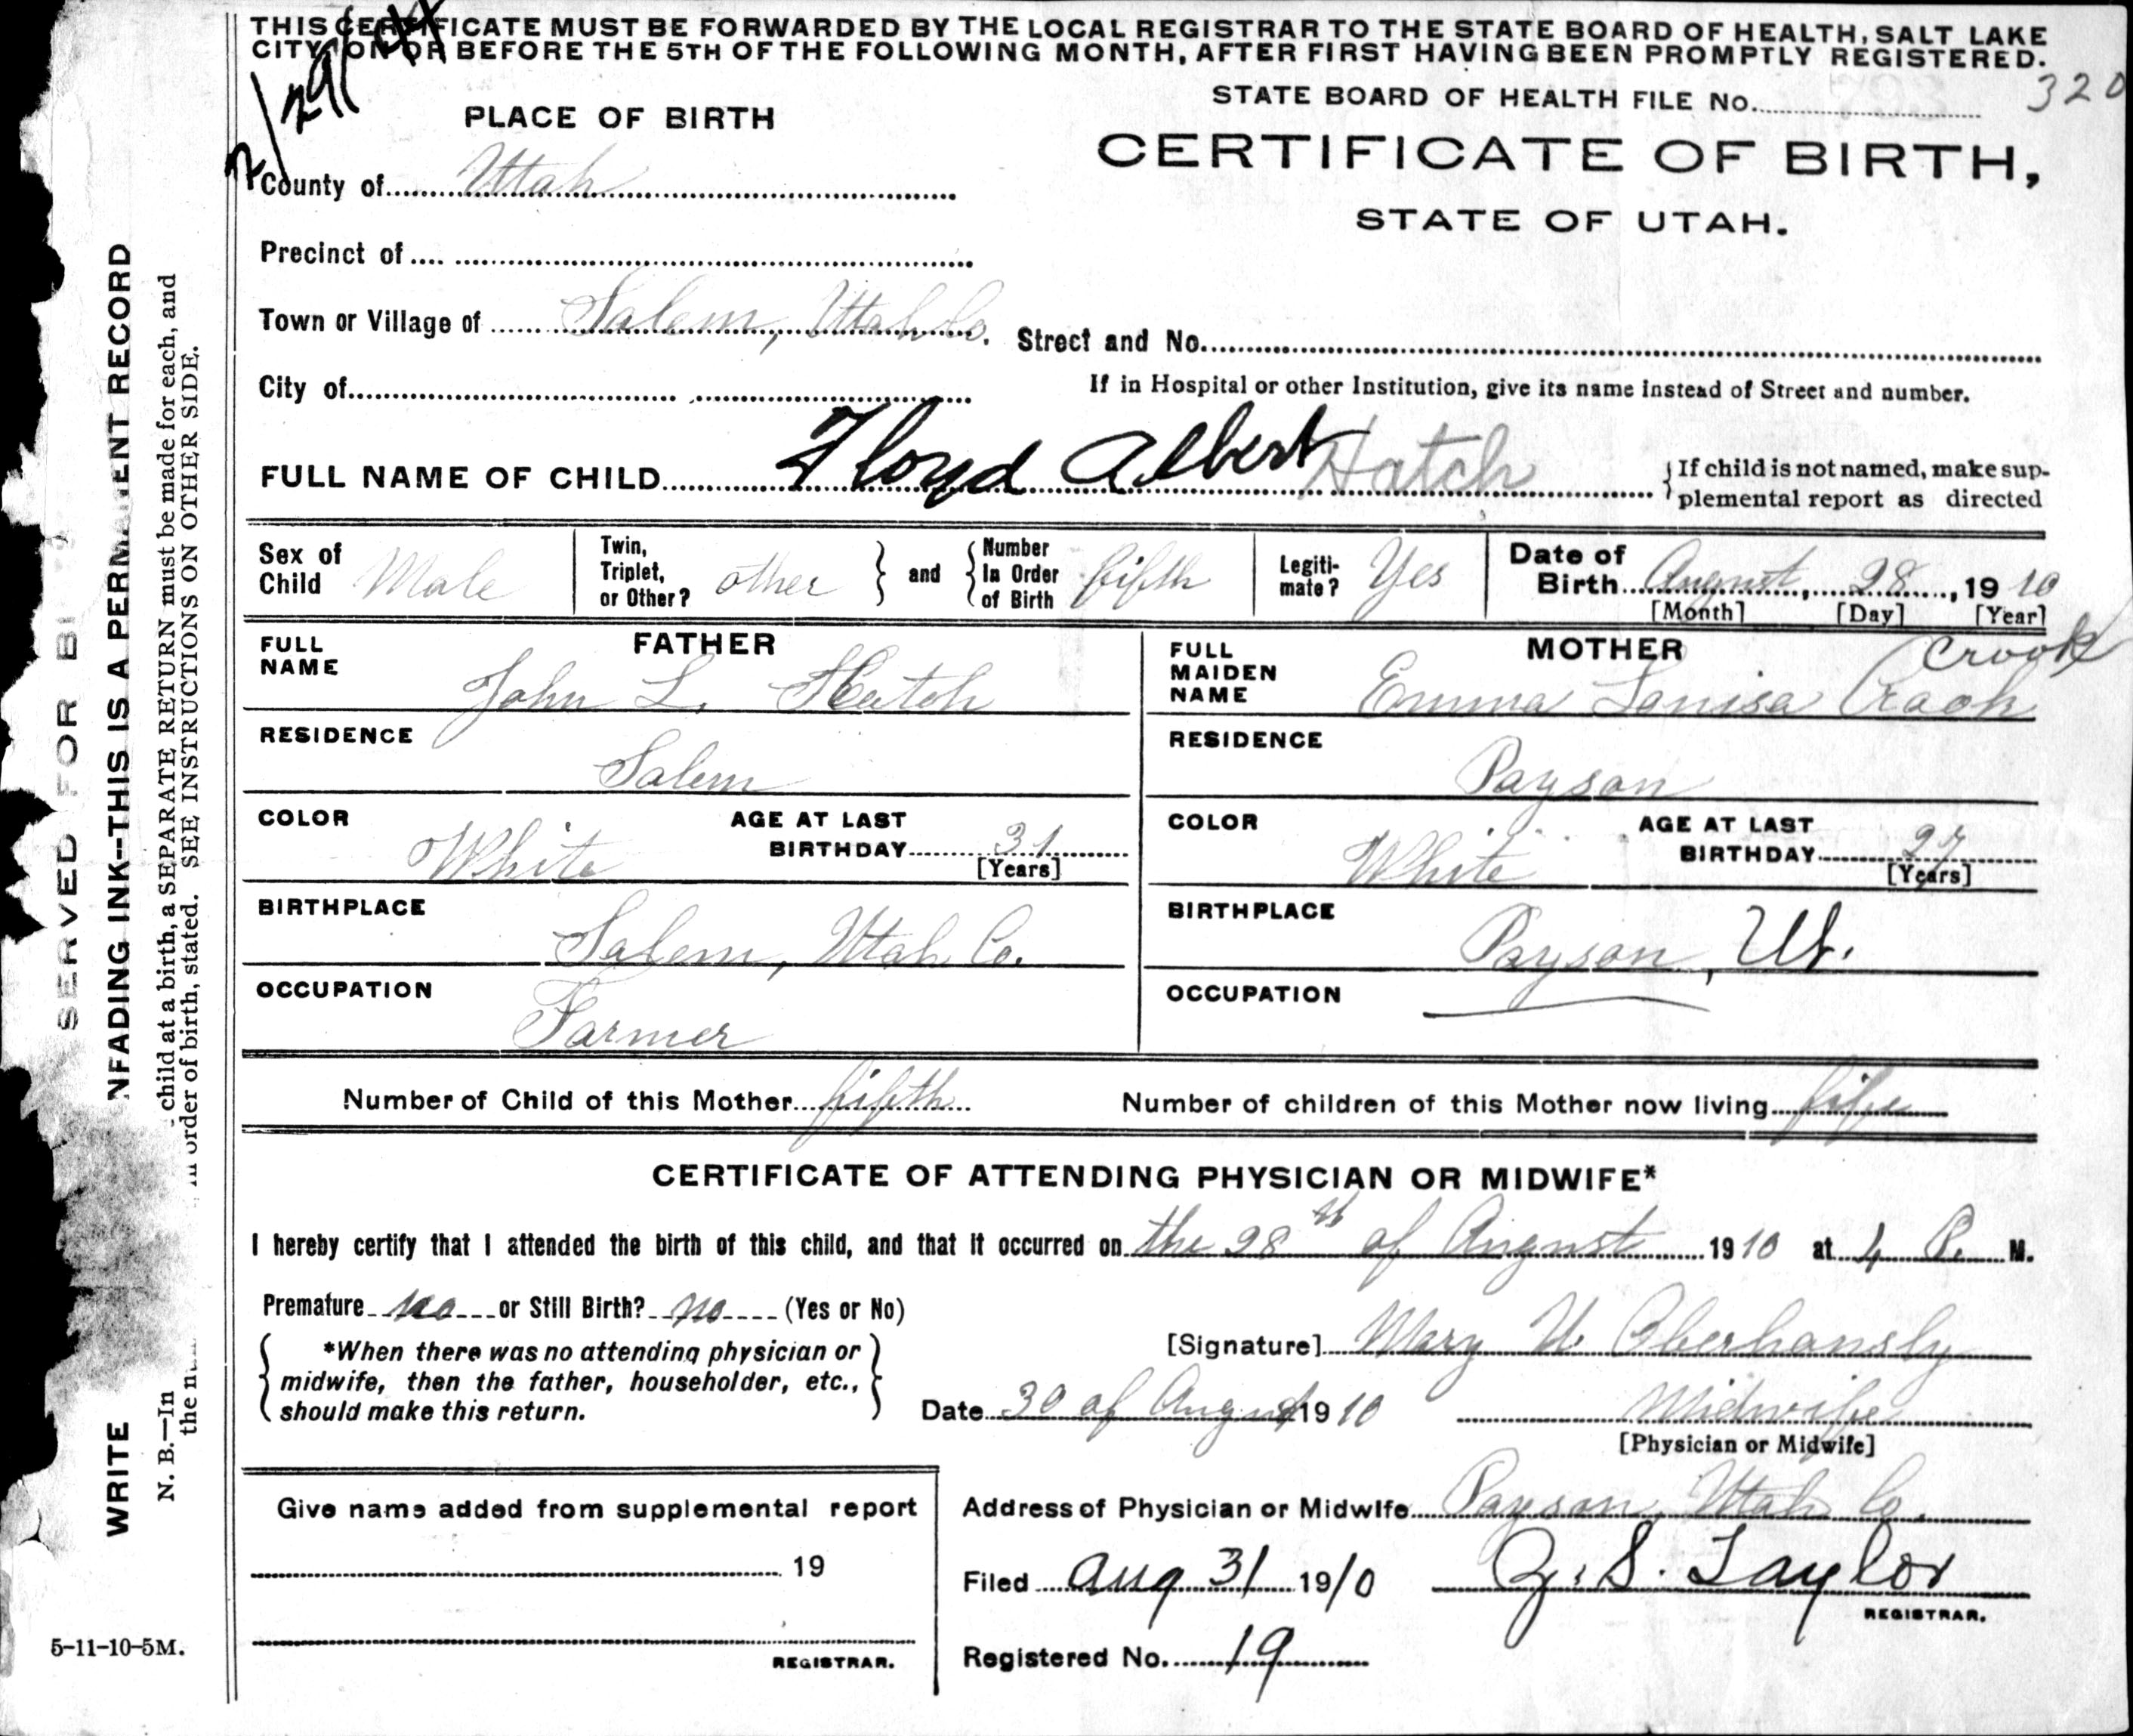 THIS CERTIFICATE MUST BE FORWARDED BY THE LOCAL REGISTRAR TO THE STATE BOARD OF HEALTH, SALT LAKE
CITY, ON OR BEFORE THE 5TH OF THE FOLLOWING MONTH, AFTER FIRST HAVING BEEN PROMPTLY REGISTERED.
STATE BOARD OF HEALTH FILE No. 320
PLACE OF BIRTH
CERTIFICATE OF BIRTH,
STATE OF UTAH.
County of Utah
Precinct of
Town or Village of Salem, Utah Co. Street and No.
City of
If in Hospital or other Institution, give its name instead of Street and number.
FULL NAME OF CHILD Floyd Albert Hatch
If child is not named, make sup-
plemental report as directed
Sex of Child Male
Twin, Triplet, or Other? other and Number In Order of Birth fifth
Legiti-mate? Yes
Date of Birth August, 28, 1910
[Month] [Day] [Year]
FATHER
FULL NAME John L. Hatch
RESIDENCE Salem
COLOR White AGE AT LAST BIRTHDAY 31 [Years]
BIRTHPLACE Salem, Utah Co.
OCCUPATION Farmer
MOTHER
Crook
FULL MAIDEN NAME Emma Louisa Crook
RESIDENCE Payson
COLOR White AGE AT LAST BIRTHDAY 27 [Years]
BIRTHPLACE Payson, Ut.
OCCUPATION
Number of Child of this Mother fifth Number of children of this Mother now living fife
CERTIFICATE OF ATTENDING PHYSICIAN OR MIDWIFE*
I hereby certify that I attended the birth of this child, and that it occurred on the 28th of August 1910 at 4 P. M.
Premature no or Still Birth? no (Yes or No)
*When there was no attending physician or
midwife, then the father, householder, etc.,
should make this return.
[Signature] Mary U. Oberhansly
Date 30 of August 1910 Midwife
[Physician or Midwife]
Give name added from supplemental report
19
REGISTRAR.
Address of Physician or Midwife Payson, Utah Co.
Filed Aug 31 1910 Z. S. Taylor
REGISTRAR.
Registered No. 19
5-11-10-5M.
SERVED FOR BI
WRITE NFADING INK--THIS IS A PERMANENT RECORD
N. B.—In child at a birth, a SEPARATE RETURN must be made for each, and
the in order of birth, stated. SEE INSTRUCTIONS ON OTHER SIDE.